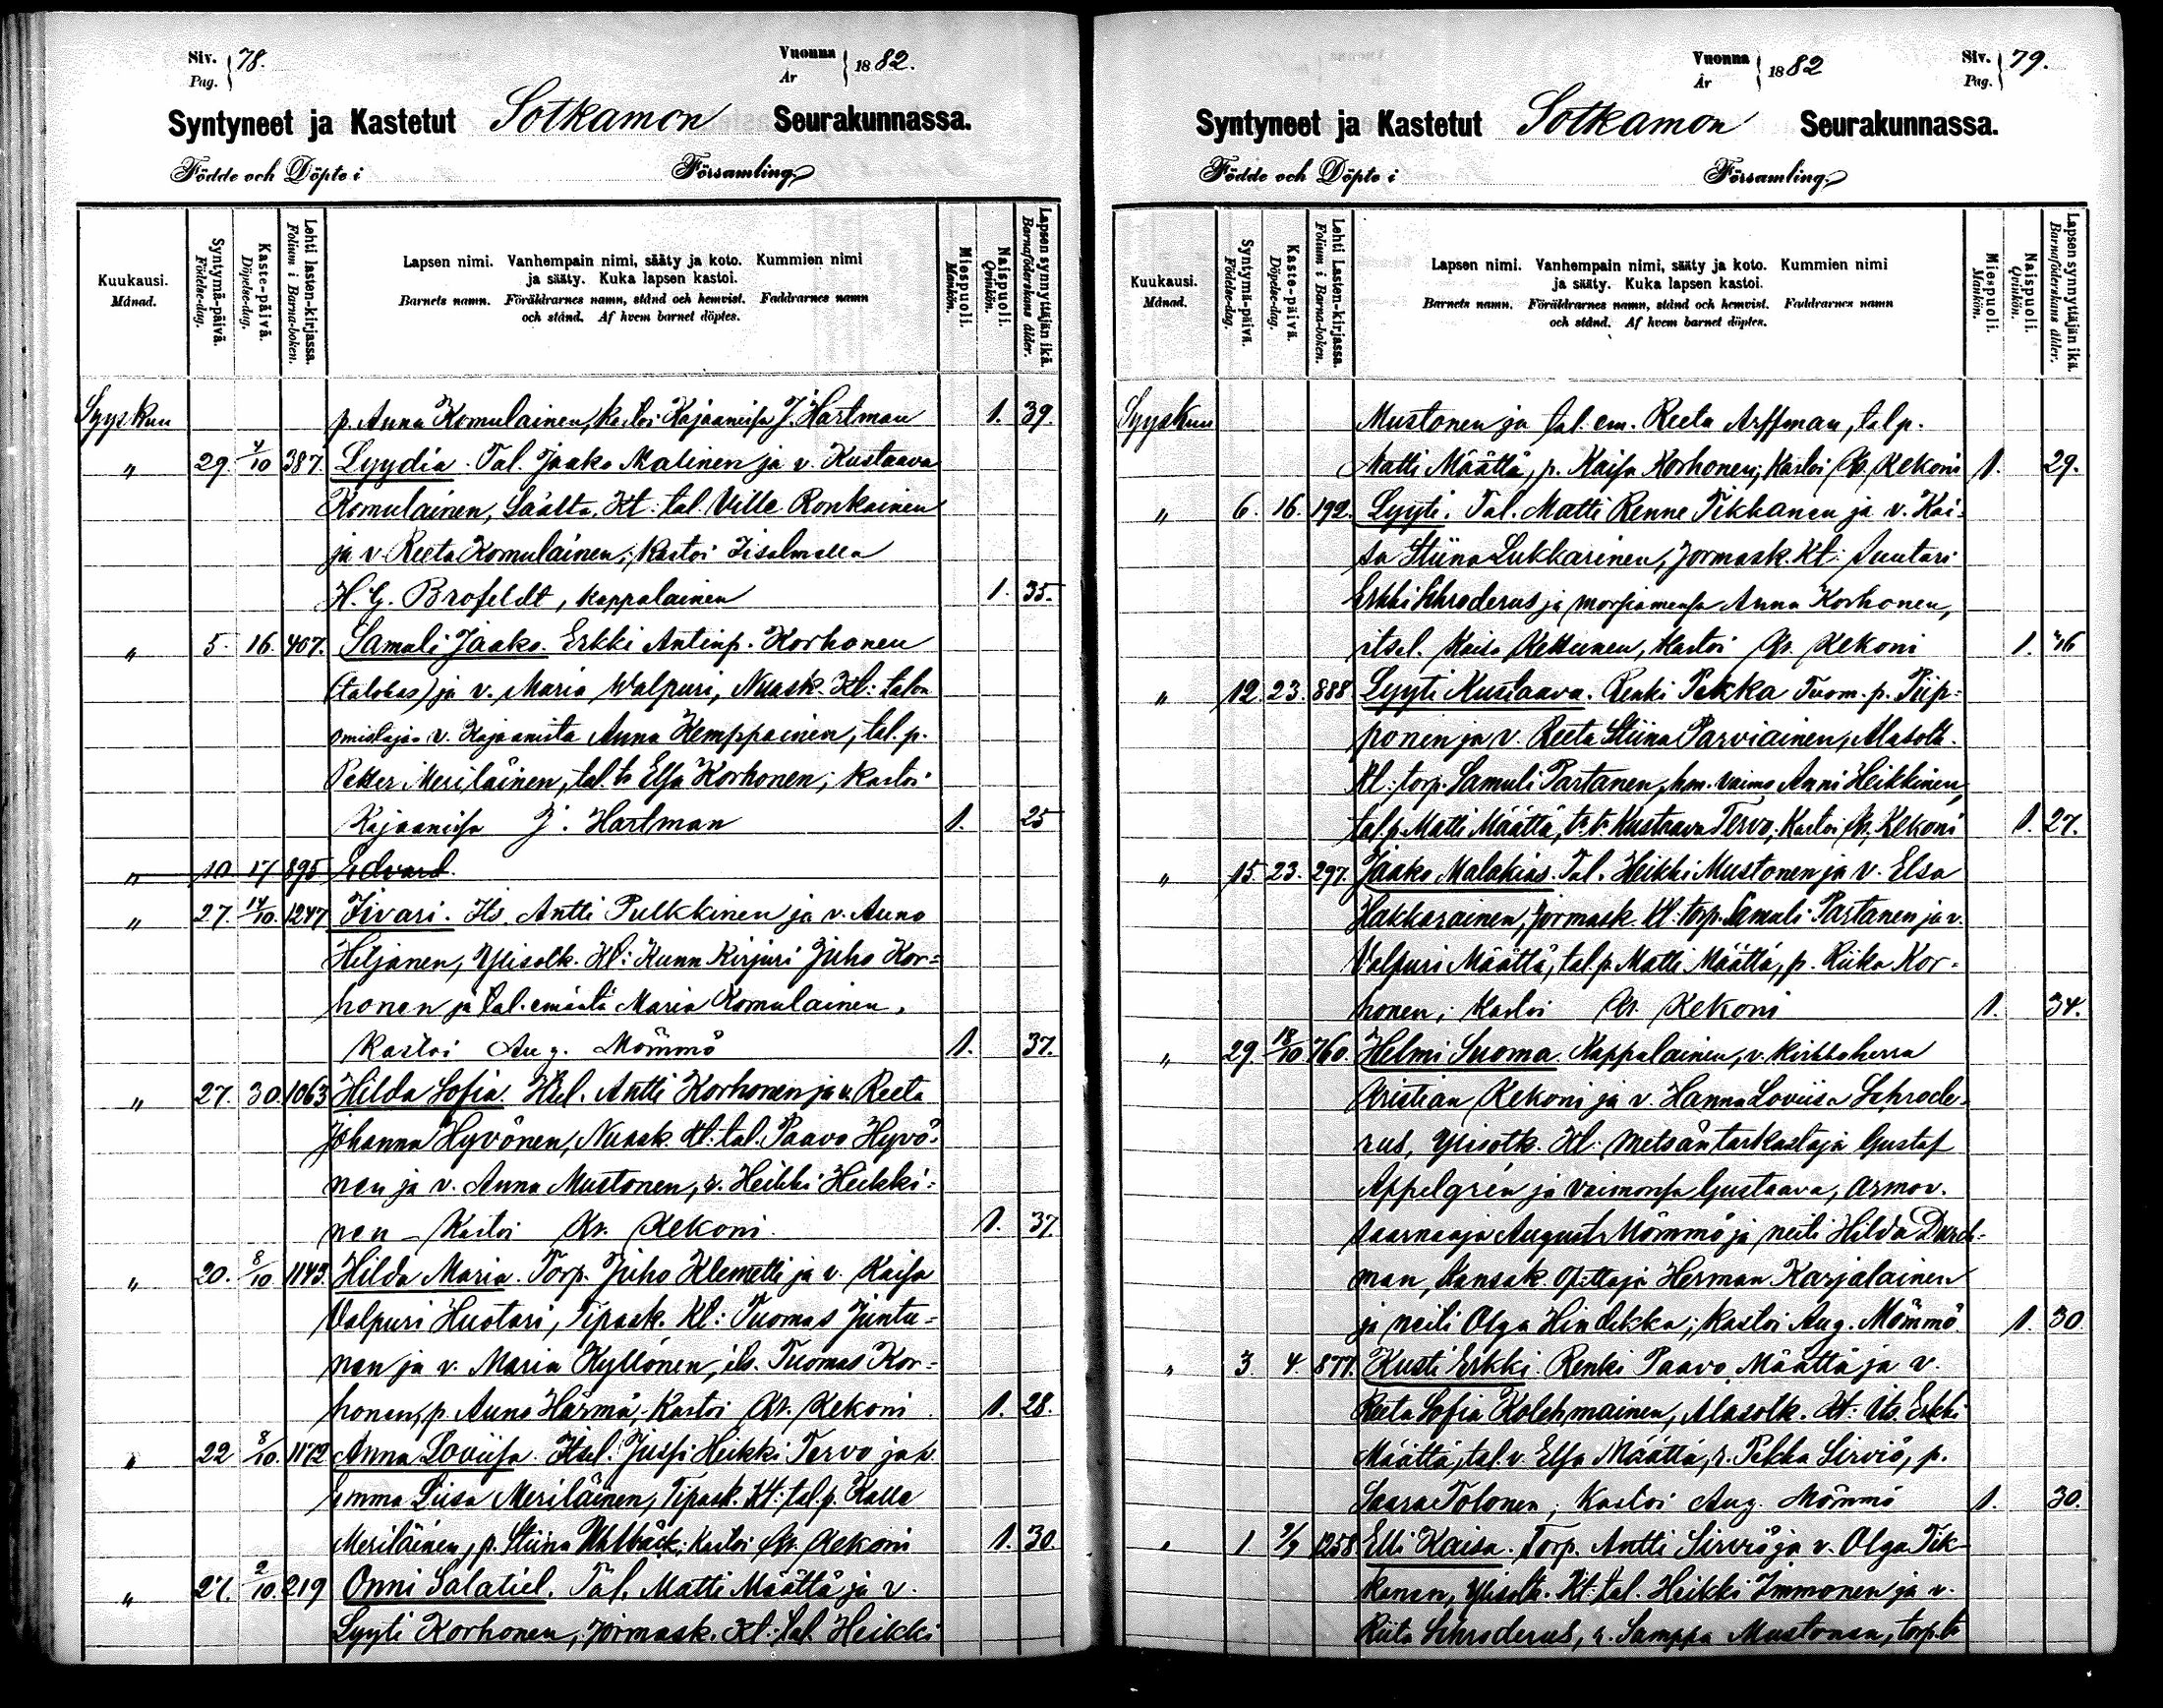 Siv. Pag. 78.
Vuonna År 1882.
Syntyneet ja Kastetut Sotkamon Seurakunnassa.
Födde och Döpte i Församling.
Kuukausi. Månad.
Syntymä-päivä. Födelse-dag.
Kaste-päivä. Döpelse-dag.
Lehti lasten-kirjassa. Folium i Barna-boken.
Lapsen nimi. Vanhempain nimi, sääty ja koto. Kummien nimi
ja sääty. Kuka lapsen kastoi.
Barnets namn. Föräldrarnes namn, stånd och hemvist. Faddrarnes namn
och stånd. Af hvem barnet döptes.
Miespuoli. Mankön.
Naispuoli. Qvinkön.
Lapsen synnyttäjän ikä. Barnaföderskans ålder.
Syyskuu p. Anna Komulainen, kastoi Kajaanissa J. Hartman 1. 39.
" 29. 4/10 387. Lyydia. Tal. Jaako Matinen ja v. Kustaava
Komulainen, Säätta. Kt: tal. Ville Ronkainen
ja v. Reeta Komulainen; Kastoi Iisalmella
H. G. Brofeldt, kappalainen 1. 35.
" 5. 16. 407. Samuli Jaako. Erkki Antinp. Korhonen
(talokas) ja v. Maria Walpuri, Nuask. Kt: talon
omistaja v. Kajaanista Anna Kemppainen, tal. p.
Petter Meriläinen, tal. tr Elsa Korhonen; kastoi
Kajaanissa J. Hartman 1. 25
" 10 17 895 Edvard.
" 27. 14/10. 1247 Iivari. Its. Antti Pulkkinen ja v. Auno
Hiljanen, Ylisotk. Kt: Kunn. Kirjuri Juho Kor=
honen ja tal. emäntä Maria Komulainen.
Kastoi Aug. Mömmö 1. 37.
" 27. 30. 1063 Hilda Sofia. Itsel. Antti Korhonen ja v. Reeta
Johanna Hyvönen, Nuask. Kt: tal. Paavo Hyvö=
nen ja v. Anna Mustonen, r. Heikki Heikki=
nen - Kastoi Kr. Kekoni. 1. 37.
" 20. 8/10 1143. Hilda Maria. Torp. Juho Klemetti ja v. Kaisa
Valpuri Huotari, Tipask. Kt: Tuomas Juntu=
nen ja v. Maria Kyllönen, its. Tuomas Kor=
honen, p. Auno Härmä; Kastoi Kr. Kekoni. 1. 28.
" 22 8/10. 1172 Anna Loviisa. Itsel. Jussi Heikki Tervo ja v.
Emma Liisa Meriläinen, Tipask. Kt: tal. p. Kalle
Meriläinen, p. Stiina Ahlbäck; Kastoi Kr. Kekoni 1. 30.
" 27. 2/10. 219 Onni Salatiel. Tal. Matti Määttä ja v.
Lyyti Korhonen, Jormask. Kt: tal. Heikki
Vuonna År 1882
Siv. Pag. 79.
Syntyneet ja Kastetut Sotkamon Seurakunnassa.
Födde och Döpte i Församling.
Kuukausi. Månad.
Syntymä-päivä. Födelse-dag.
Kaste-päivä. Döpelse-dag.
Lehti Lasten-kirjassa. Folium i Barna-boken.
Lapsen nimi. Vanhempain nimi, sääty ja koto. Kummien nimi
ja sääty. Kuka lapsen kastoi.
Barnets namn. Föräldrarnes namn, stånd och hemvist. Faddrarnes namn
och stånd. Af hvem barnet döptes.
Miespuoli. Mankön.
Naispuoli. Qvinkön.
Lapsen synnyttäjän ikä. Barnaföderskans ålder.
Syyskuu Mustonen ja tal. em. Reeta Arffman, tal p.
Matti Määttä, p. Kaisa Korhonen; Kastoi Kr. Kekoni 1. 29.
" 6. 16. 192. Lyyti. Tal. Matti Renne Tikkanen ja v. Kai=
sa Stiina Lukkarinen, Jormask. Kt: Suutari
Erkki Schroderus ja morsiamensa Anna Korhonen,
itsel. Kaisa Kekkunen, kastoi Kr. Kekoni 1. 46
" 12. 23. 888 Lyyti Kustaava. Renki Pekka Tuom. p. Piip=
ponen ja v. Reeta Stiina Parviainen, Alasotk.
Kt: torp. Samuli Partanen, hm. vaimo Anni Heikkinen,
tal. p. Matti Määttä, t. tr Kustaava Tervo; Kastoi Kr. Kekoni 1. 27.
" 15. 23. 297. Jaako Malakias. Tal. Heikki Mustonen ja v. Elsa
Hakkarainen, Jormask. Kt: torp. Samuli Partanen ja v.
Valpuri Määttä, tal. p. Matti Määttä, p. Riika Kor=
honen; Kastoi Kr. Kekoni 1. 34.
" 29. 18/10 760. Helmi Suoma. Kappalainen, v. kirkkoherra
Kristian Kekoni ja v. Hanna Loviisa Schrode=
rus, Ylisotk. Kt: metsäntarkastaja Gustaf
Appelgrén ja vaimonsa Gustaava, armov.
saarnaaja August Mömmö ja neiti Hilda Durch=
man, kansak. opettaja Herman Karjalainen
ja neiti Olga Hindikka; kastoi Aug. Mömmö. 1. 30
" 3. 4. 877. Kusti Erkki. Renki Paavo Määttä ja v.
Reeta Sofia Kolehmainen, Alasotk. Kt: its. Erkki
Määttä, tal. v. Elsa Määttä, r. Pekka Sirviö, p.
Saara Tolonen; Kastoi Aug. Mömmö 1. 30.
" 1. 1258 Elli Kaisa. Torp. Antti Sirviö ja v. Olga Tik=
kanen, Ylisotk. Kt: tal. Heikki Immonen ja v.
Riita Schroderus, r. Samppa Mustonen, torp. tr